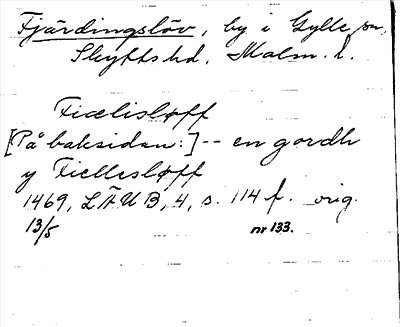 Fjärdingslöv, by i Gylle sn.
Skytts hd. Malm. l.
Fiælisløff
[På baksidan:] -- en gordh
y Fiellesløff
1469, LÄUB, 4, s. 114 f. orig.
13/5 nr 133.